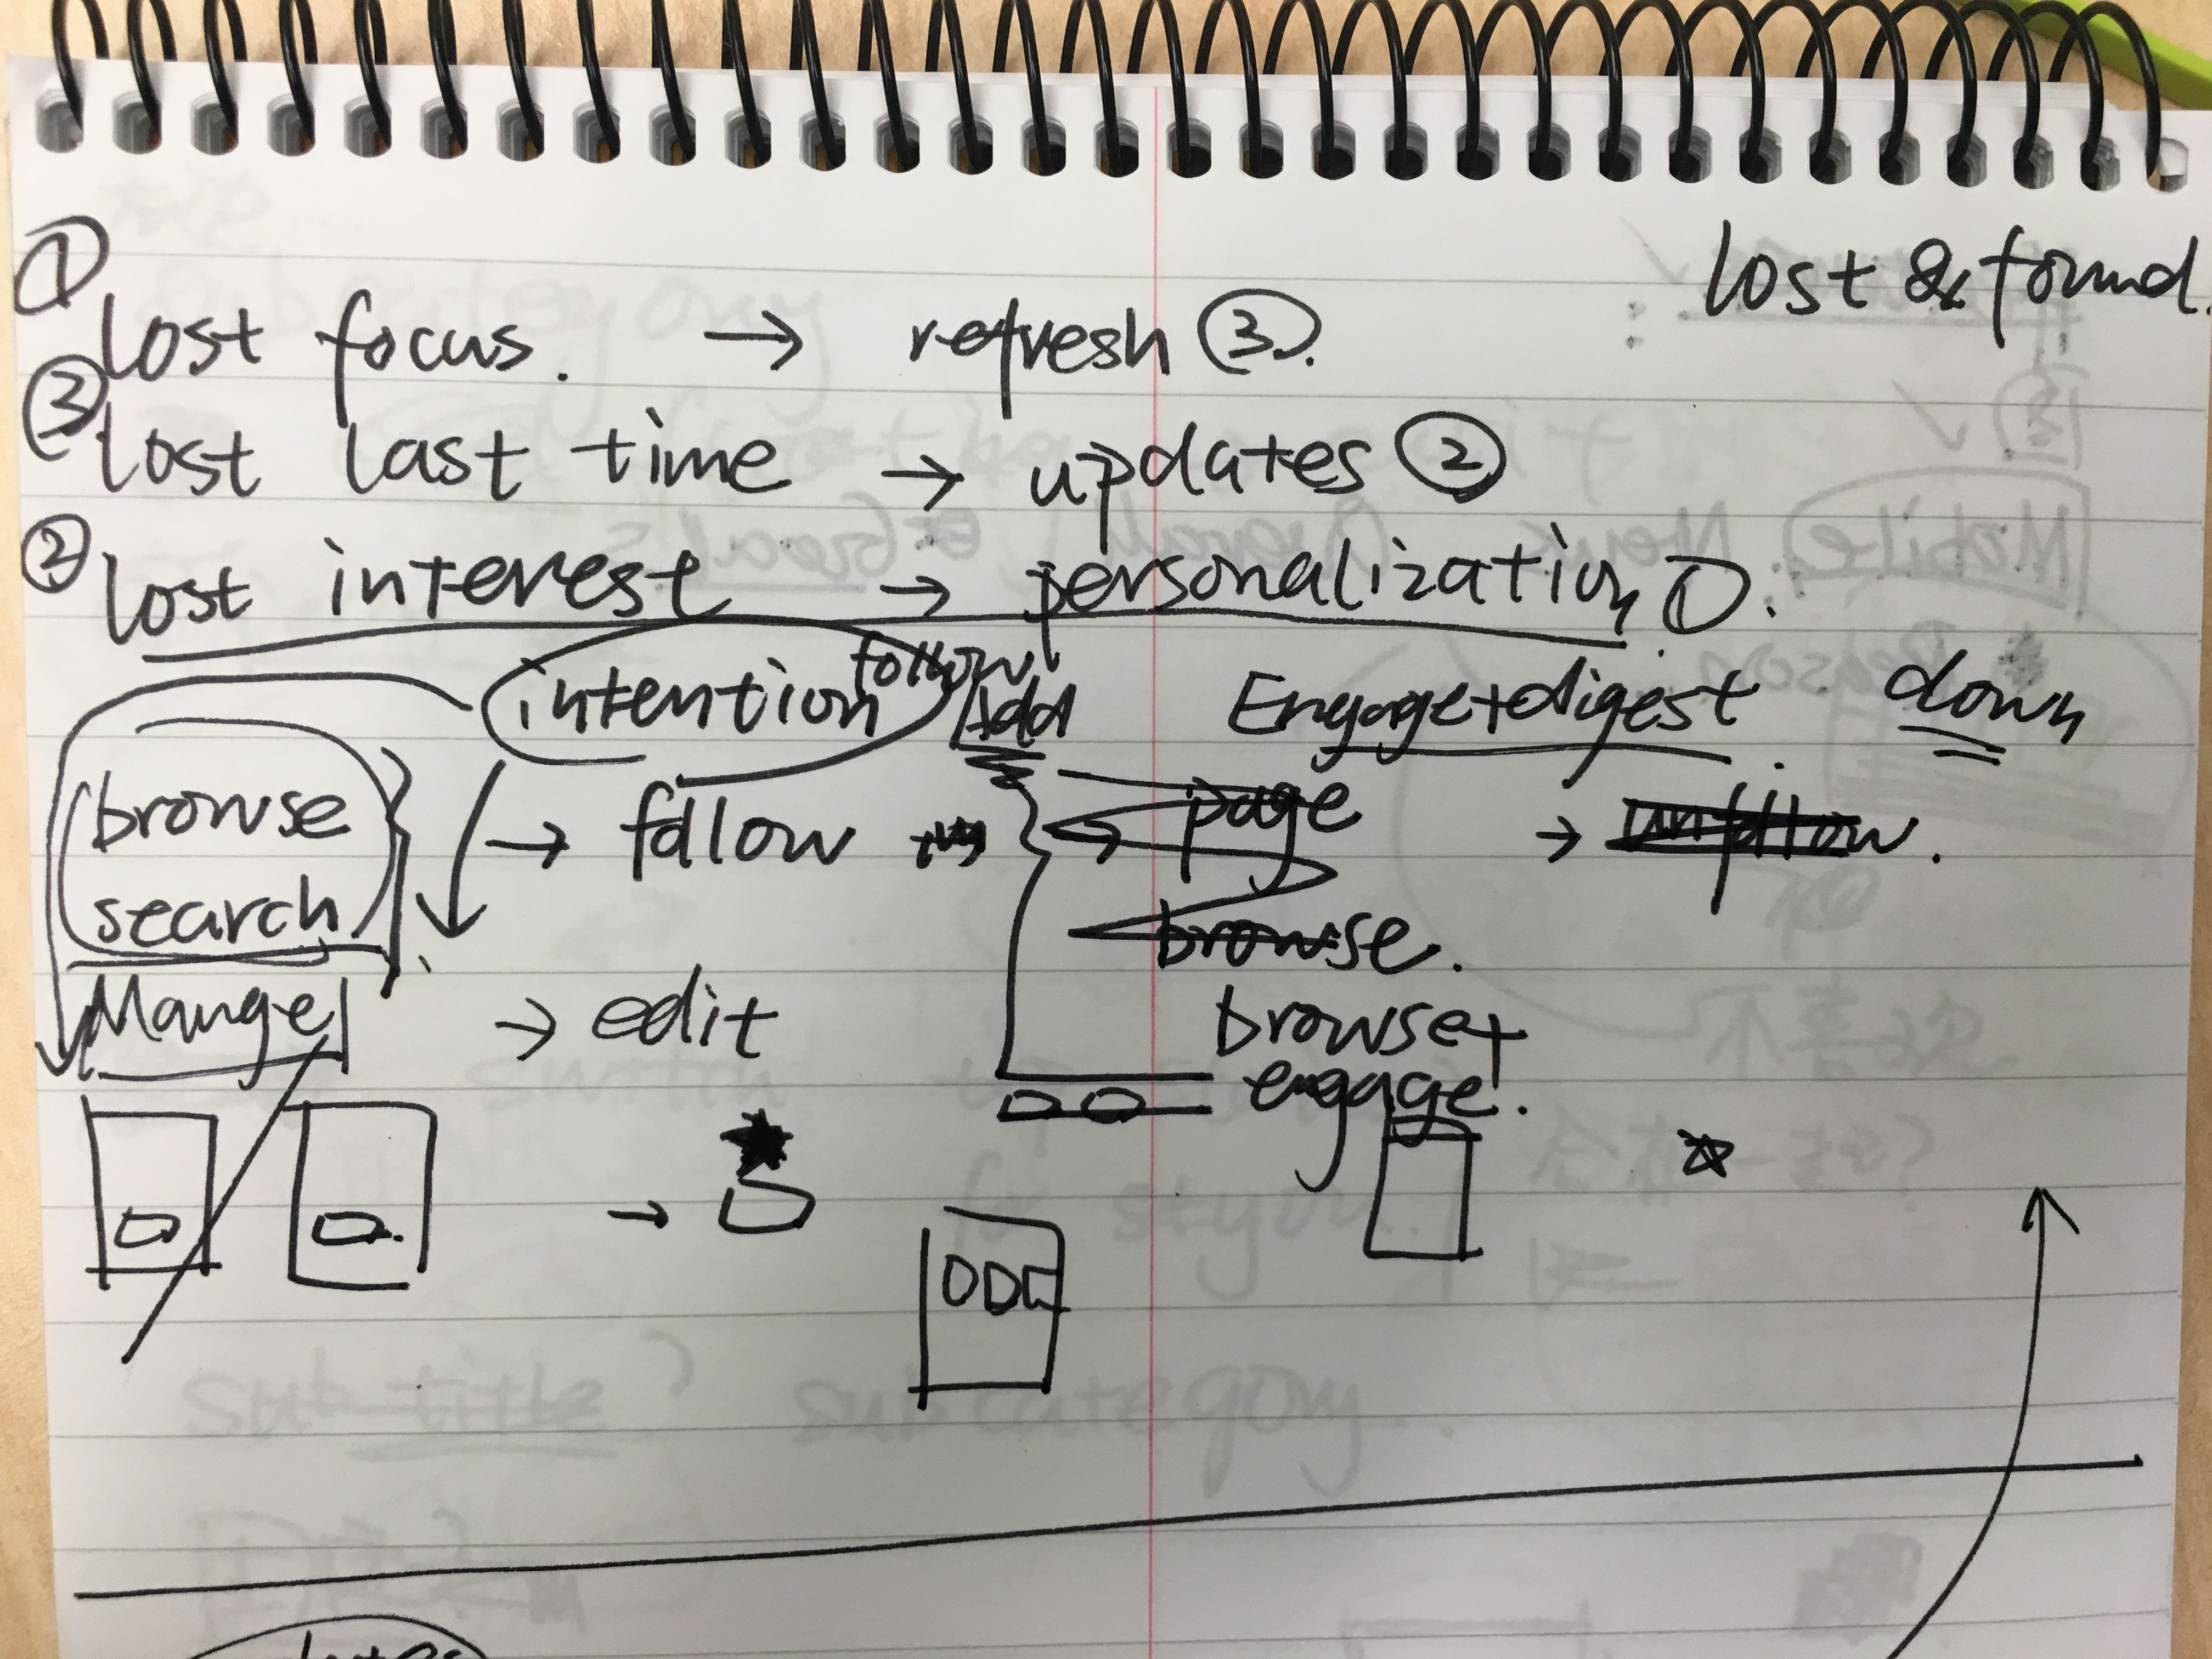 lost & found.
① lost focus. → refresh ③.
③ lost last time → updates ②
② lost interest → personalization ①.
intention follow/add Engage+digest along
browse → follow → page →
search browse.
Manage → edit browse+
engage.